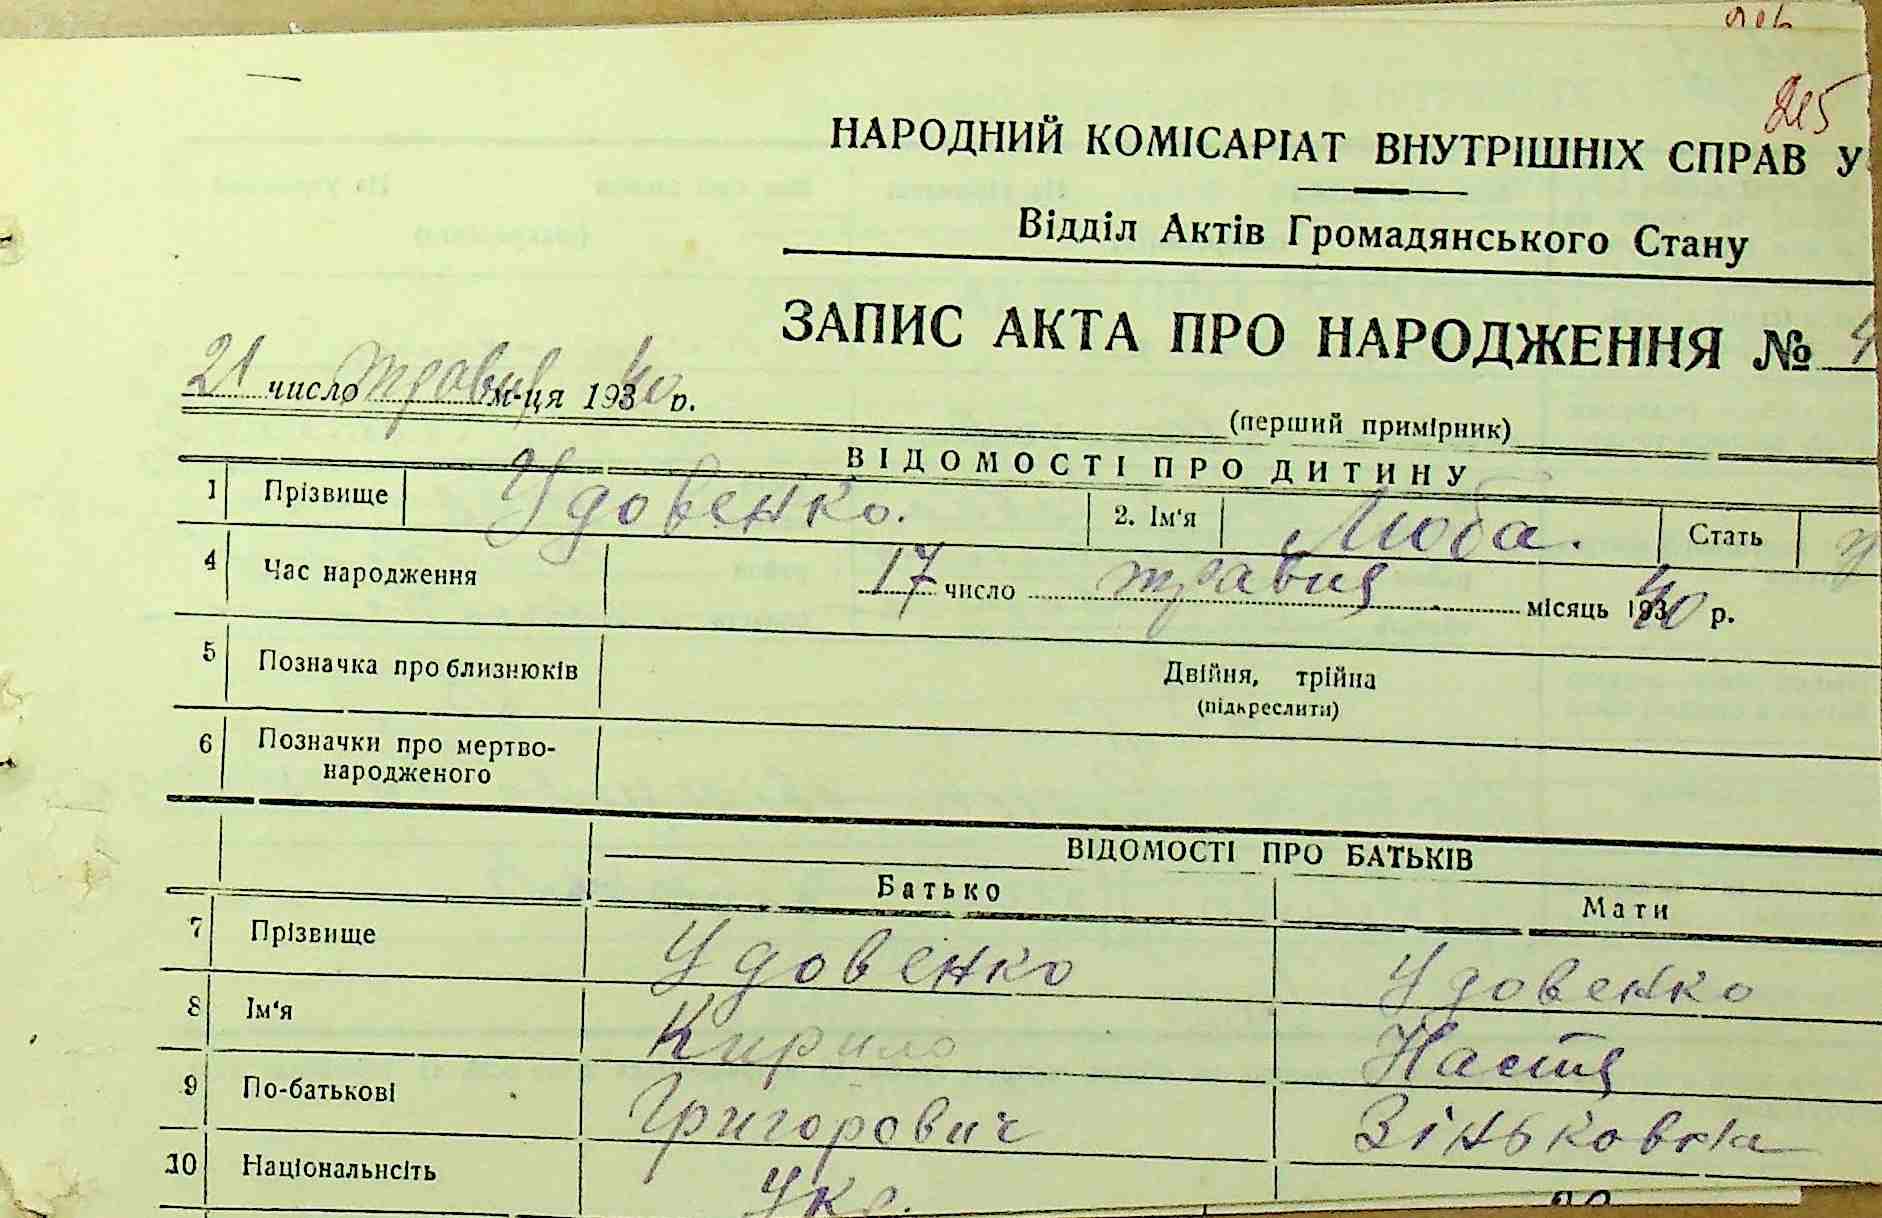 215
НАРОДНИЙ КОМІСАРІАТ ВНУТРІШНІХ СПРАВ У
Відділ Актів Громадянського Стану
ЗАПИС АКТА ПРО НАРОДЖЕННЯ № 4
21 число травня м-ця 1940 р.
(перший примірник)
ВІДОМОСТІ ПРО ДИТИНУ
1 Прізвище Удовенко. 2. Ім'я Люба. Стать
4 Час народження 17 число травня місяць 1940 р.
5 Позначка про близнюків Двійня, трійна
(підкреслити)
6 Позначки про мертво-
народженого
ВІДОМОСТІ ПРО БАТЬКІВ
Батько Мати
7 Прізвище Удовенко Удовенко
8 Ім'я Кирило Настя
9 По-батькові Григорович Зіньковна
10 Національнсіть Укр.